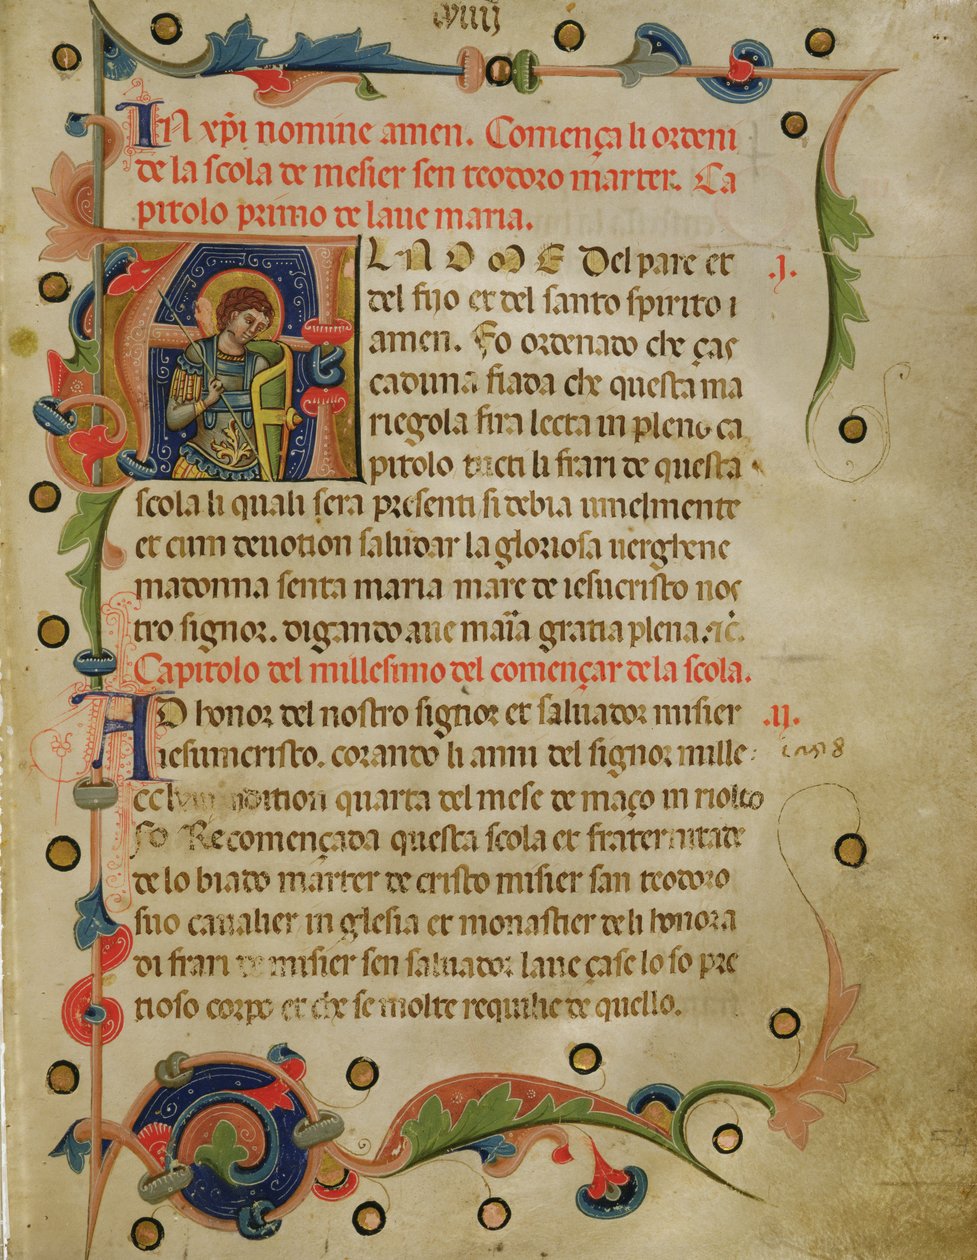 viiij
In xp̄i nomine amen. Comença li ordeni
de la scola de misier sen teodoro marter. Ca
pitolo primo de laue maria.
A L N O M E Del pare et .j.
del fijo et del santo spirito i
amen. Fo ordenado che ças
caduna fiada che questa ma
riegola sira lecta in pleno ca
pitolo tucti li frari de questa
scola li quali sera presenti si debia umelmente
et cum deuotion saludar la gloriosa uergene
madonna senta maria mare de iesucristo nos
tro signor. digando aue mar̄ia gratia plena. ⁊c̄.
Capitolo del millesimo del començar de la scola.
AD honor del nostro signor et saluador misier .ij.
iesumcristo. corando li anni del signor mille 1258
cclviii indition quarta del mese de março in riolto
fo Recomençada questa scola et fraternitade
de lo biado marter de cristo misier san teodoro
suo caualier in glesia et monastier de li honora
di frari de misier sen saluador laue çase lo so pre
tioso corpo et che se molte requilie de quello.